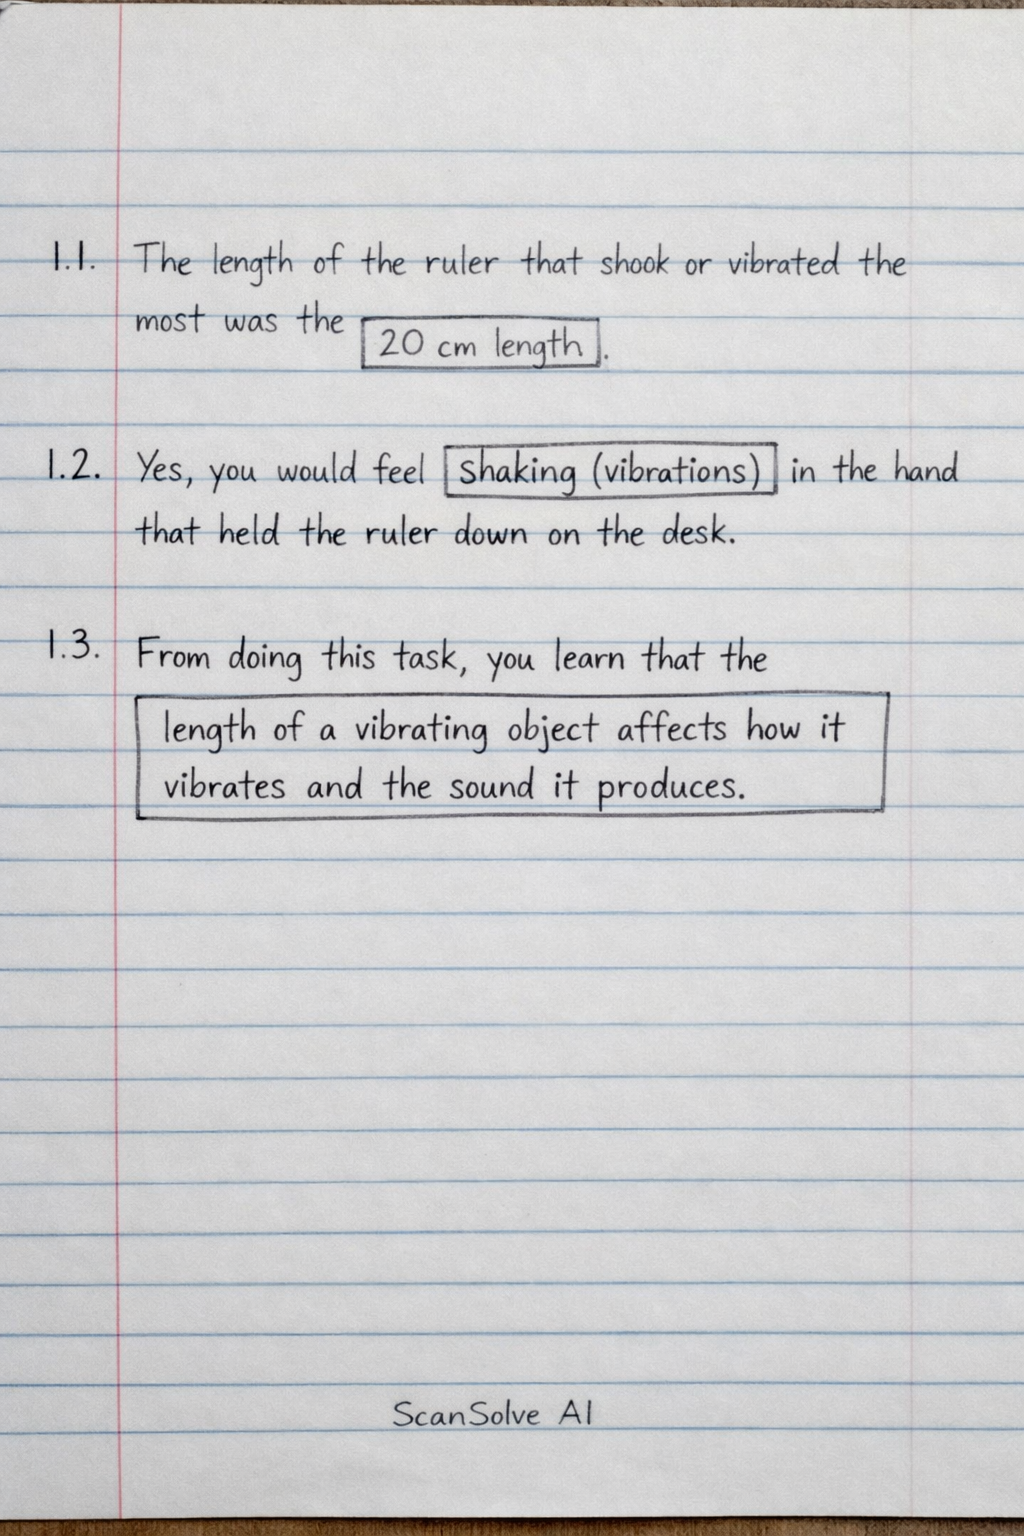 1.1. The length of the ruler that shook or vibrated the
most was the 20 cm length.
1.2. Yes, you would feel shaking (vibrations) in the hand
that held the ruler down on the desk.
1.3. From doing this task, you learn that the
length of a vibrating object affects how it
vibrates and the sound it produces.
ScanSolve AI